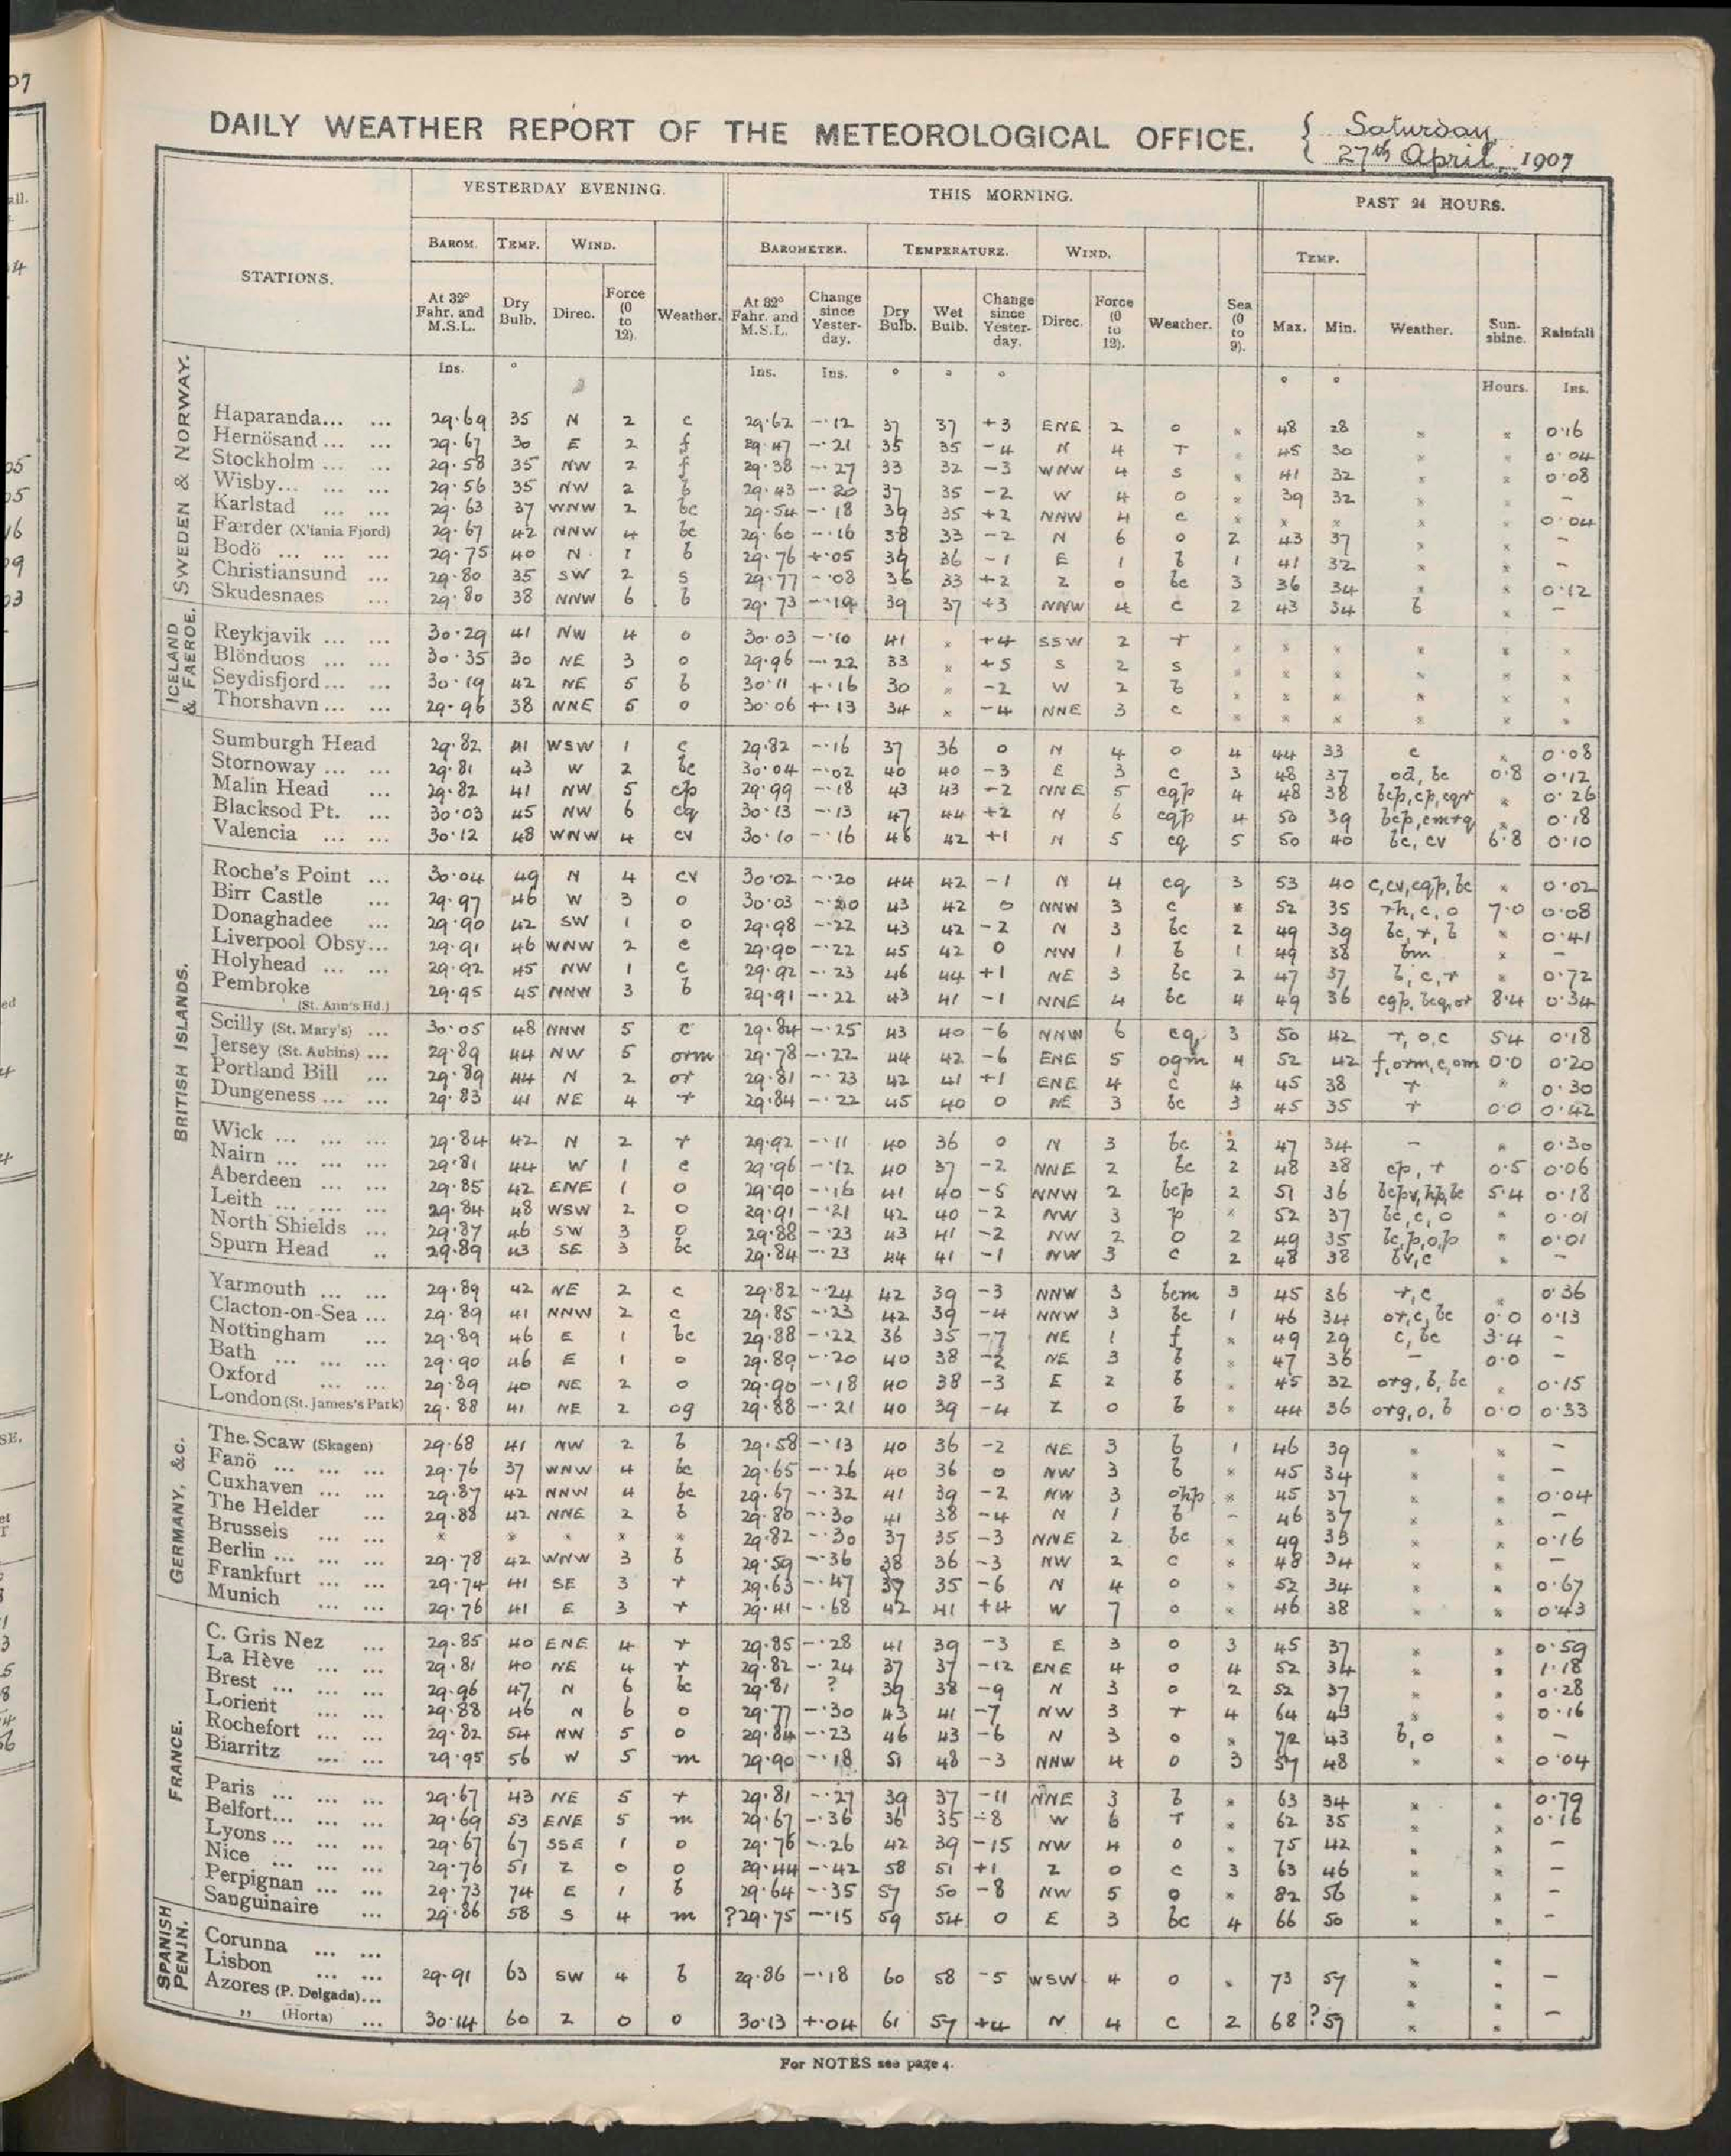 DAILY WEATHER REPORT OF THE METEOROLOGICAL OFFICE. { Saturday
{ 27th April, 1907
STATIONS. YESTERDAY EVENING. THIS MORNING. PAST 24 HOURS.
BAROM. TEMP. WIND. Weather. BAROMETER. TEMPERATURE. WIND. Weather. Sea (0 to 9). TEMP. Weather. Sunshine. Rainfall
At 32° Fahr. and M.S.L. Dry Bulb. Direc. Force (0 to 12). At 32° Fahr. and M.S.L. Change since Yesterday. Dry Bulb. Wet Bulb. Change since Yesterday. Direc. Force (0 to 12). Max. Min.
Ins. ° Ins. Ins. ° ° ° ° ° Hours. Ins.
SWEDEN & NORWAY.
Haparanda... ... 29.69 35 N 2 c 29.62 -.12 37 37 +3 ENE 2 o × 48 28 × × 0.16
Hernösand ... ... 29.67 30 E 2 f 29.47 -.21 35 35 -4 N 4 r × 45 30 × × 0.04
Stockholm ... ... 29.58 35 NW 2 f 29.38 -.27 33 32 -3 WNW 4 s × 41 32 × × 0.08
Wisby... ... ... 29.56 35 NW 2 b 29.43 -.20 37 35 -2 W 4 o × 39 32 × × -
Karlstad ... ... 29.63 37 WNW 2 bc 29.54 -.18 39 35 +2 NNW 4 c × × × × × 0.04
Færder (X'iania Fjord) 29.67 42 NNW 4 bc 29.60 -.16 38 33 -2 N 6 o 2 43 37 × × -
Bodö ... ... ... 29.75 40 N 1 b 29.76 +.05 39 36 -1 E 1 b 1 41 32 × × -
Christiansund ... 29.80 35 SW 2 s 29.77 -.08 36 33 +2 Z 0 bc 3 36 34 × × 0.12
Skudesnaes ... 29.80 38 NNW 6 b 29.73 -.19 39 37 +3 NNW 4 c 2 43 34 b × -
ICELAND & FAEROE.
Reykjavik ... ... 30.29 41 NW 4 o 30.03 -.10 41 × +4 SSW 2 r × × × × × ×
Blönduos ... ... 30.35 30 NE 3 o 29.96 -.22 33 × +5 S 2 s × × × × × ×
Seydisfjord ... ... 30.19 42 NE 5 b 30.11 +.16 30 × -2 W 2 b × × × × × ×
Thorshavn ... ... 29.96 38 NNE 5 o 30.06 +.13 34 × -4 NNE 3 c × × × × × ×
BRITISH ISLANDS.
Sumburgh Head 29.82 41 WSW 1 c 29.82 -.16 37 36 0 N 4 o 4 44 33 c × 0.08
Stornoway ... ... 29.81 43 W 2 bc 30.04 -.02 40 40 -3 E 3 c 3 48 37 od, bc 0.8 0.12
Malin Head ... 29.82 41 NW 5 cp 29.99 -.18 43 43 -2 NNE 5 cqp 4 48 38 bcp, cp, cqr × 0.26
Blacksod Pt. ... 30.03 45 NW 6 cq 30.13 -.13 47 44 +2 N 6 cqp 4 50 39 bcp, cmrq × 0.18
Valencia ... ... 30.12 48 WNW 4 cv 30.10 -.16 46 42 +1 N 5 cq 5 50 40 bc, cv 6.8 0.10
Roche's Point ... 30.04 49 N 4 cv 30.02 -.20 44 42 -1 N 4 cq 3 53 40 c, cv, cqp, bc × 0.02
Birr Castle ... 29.97 46 W 3 o 30.03 -.20 43 42 0 NNW 3 c × 52 35 rh, c, o 7.0 0.08
Donaghadee ... 29.90 42 SW 1 o 29.98 -.22 43 42 -2 N 3 bc 2 49 39 bc, r, b × 0.41
Liverpool Obsy... 29.91 46 WNW 2 c 29.90 -.22 45 42 0 NW 1 b 1 49 38 bm × -
Holyhead ... ... 29.92 45 NW 1 c 29.92 -.23 46 44 +1 NE 3 bc 2 47 37 b, c, r × 0.72
Pembroke (St. Ann's Hd.) 29.95 45 NNW 3 b 29.91 -.22 43 41 -1 NNE 4 bc 4 49 36 cqp, bcq, or 8.4 0.34
Scilly (St. Mary's) ... 30.05 48 NNW 5 c 29.84 -.25 43 40 -6 NNW 6 cq 3 50 42 r, o, c 5.4 0.18
Jersey (St. Aubins) ... 29.89 44 NW 5 orm 29.78 -.22 44 42 -6 ENE 5 ogm 4 52 42 f, orm, c, om 0.0 0.20
Portland Bill ... 29.89 44 N 2 or 29.81 -.23 42 41 +1 ENE 4 c 4 45 38 r × 0.30
Dungeness ... ... 29.83 41 NE 4 r 29.84 -.22 45 40 0 NE 3 bc 3 45 35 r 0.0 0.42
Wick ... ... ... 29.84 42 N 2 r 29.92 -.11 40 36 0 N 3 bc 2 47 34 - × 0.30
Nairn ... ... ... 29.81 44 W 1 c 29.96 -.12 40 37 -2 NNE 2 bc 2 48 38 cp, r 0.5 0.06
Aberdeen ... ... 29.85 42 ENE 1 o 29.90 -.16 41 40 -5 NNW 2 bcp 2 51 36 bcpv, hp, bc 5.4 0.18
Leith ... ... ... 29.84 48 WSW 2 o 29.91 -.21 42 40 -2 NW 3 p × 52 37 bc, c, o × 0.01
North Shields ... 29.87 46 SW 3 o 29.88 -.23 43 41 -2 NW 2 o 2 49 35 bc, p, o, p × 0.01
Spurn Head .. 29.89 43 SE 3 bc 29.84 -.23 44 41 -1 NW 3 c 2 48 38 bv, c × -
Yarmouth ... ... 29.89 42 NE 2 c 29.82 -.24 42 39 -3 NNW 3 bcm 3 45 36 r, c × 0.36
Clacton-on-Sea ... 29.89 41 NNW 2 c 29.85 -.23 42 39 -4 NNW 3 bc 1 46 34 or, c, bc 0.0 0.13
Nottingham ... 29.89 46 E 1 bc 29.88 -.22 36 35 -7 NE 1 f × 49 29 c, bc 3.4 -
Bath ... ... ... 29.90 46 E 1 o 29.89 -.20 40 38 -2 NE 3 b × 47 36 - 0.0 -
Oxford ... ... 29.89 40 NE 2 o 29.90 -.18 40 38 -3 E 2 b × 45 32 org, b, bc × 0.15
London (St. James's Park) 29.88 41 NE 2 og 29.88 -.21 40 39 -4 Z 0 b × 44 36 org, o, b 0.0 0.33
GERMANY, &c.
The Scaw (Skagen) 29.68 41 NW 2 b 29.58 -.13 40 36 -2 NE 3 b 1 46 39 × × -
Fanö ... ... ... 29.76 37 WNW 4 bc 29.65 -.26 40 36 0 NW 3 b × 45 34 × × -
Cuxhaven ... ... 29.87 42 NNW 4 bc 29.67 -.32 41 39 -2 NW 3 ohp × 45 37 × × 0.04
The Helder ... 29.88 42 NNE 2 b 29.80 -.30 41 38 -4 N 1 b - 46 37 × × -
Brussels ... ... × × × × × 29.82 -.30 37 35 -3 NNE 2 bc × 49 35 × × 0.16
Berlin ... ... ... 29.78 42 WNW 3 b 29.59 -.36 38 36 -3 NW 2 c × 48 34 × × -
Frankfurt ... ... 29.74 41 SE 3 r 29.63 -.47 37 35 -6 N 4 o × 52 34 × × 0.67
Munich ... ... 29.76 41 E 3 r 29.41 -.68 42 41 +4 W 7 o × 46 38 × × 0.43
FRANCE.
C. Gris Nez ... 29.85 40 ENE 4 r 29.85 -.28 41 39 -3 E 3 o 3 45 37 × × 0.59
La Hève ... ... 29.81 40 NE 4 r 29.82 -.24 37 37 -12 ENE 4 o 4 52 34 × × 1.18
Brest ... ... ... 29.96 47 N 6 bc 29.81 ? 39 38 -9 N 3 o 2 52 37 × × 0.28
Lorient ... ... 29.88 46 N 6 o 29.77 -.30 43 41 -7 NW 3 r 4 64 43 × × 0.16
Rochefort ... ... 29.82 54 NW 5 o 29.84 -.23 46 43 -6 N 3 o × 72 43 b, o × -
Biarritz ... ... 29.95 56 W 5 m 29.90 -.18 51 48 -3 NNW 4 o 3 57 48 × × 0.04
Paris ... ... ... 29.67 43 NE 5 r 29.81 -.27 39 37 -11 NNE 3 b × 63 34 × × 0.79
Belfort... ... ... 29.69 53 ENE 5 m 29.67 -.36 36 35 -8 W 6 r × 62 35 × × 0.16
Lyons ... ... ... 29.67 67 SSE 1 o 29.76 -.26 42 39 -15 NW 4 o × 75 42 × × -
Nice ... ... ... 29.76 51 Z 0 o 29.44 -.42 58 51 +1 Z 0 c 3 63 46 × × -
Perpignan ... ... 29.73 74 E 1 b 29.64 -.35 57 50 -8 NW 5 o × 82 56 × × -
Sanguinaire ... 29.86 58 S 4 m ?29.75 -.15 59 54 0 E 3 bc 4 66 50 × × -
SPANISH PENIN.
Corunna ... ... × ×
Lisbon ... ... 29.91 63 SW 4 b 29.86 -.18 60 58 -5 WSW 4 o × 73 57 × × -
Azores (P. Delgada)... × ×
,, (Horta) ... 30.14 60 Z 0 o 30.13 +.04 61 57 +4 N 4 c 2 68 ?59 × × -
For NOTES see page 4.